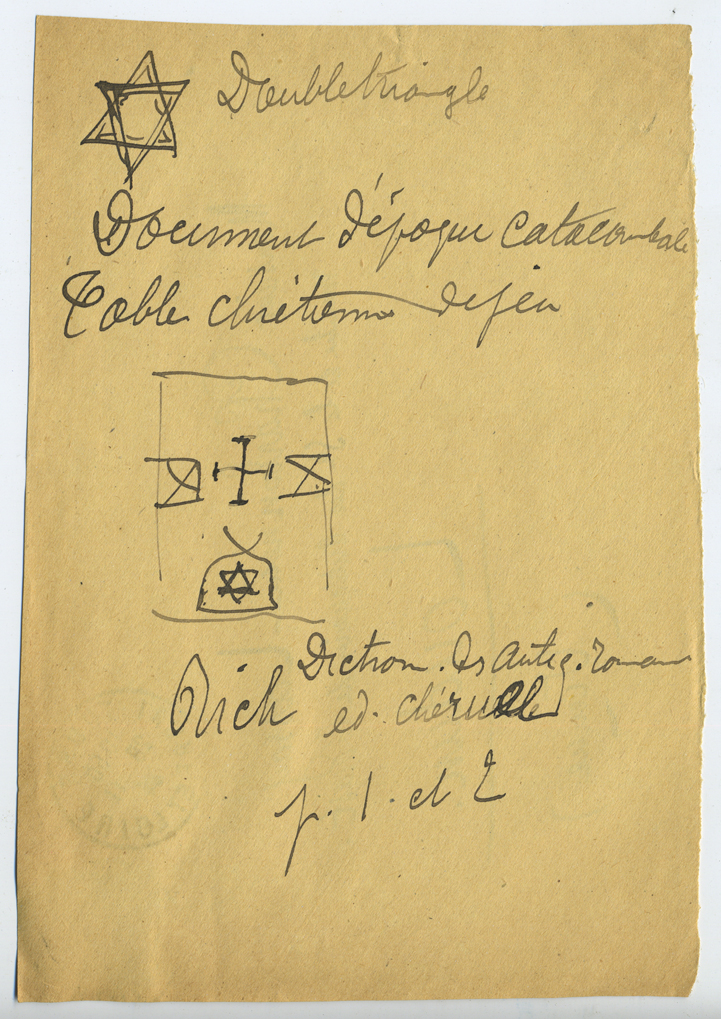 Double triangle
Document d'époque catacombale
Table chrétienne de jeu
Diction. des Antiq. romaines
Rich ed. Chéruel
p. 1. et 2